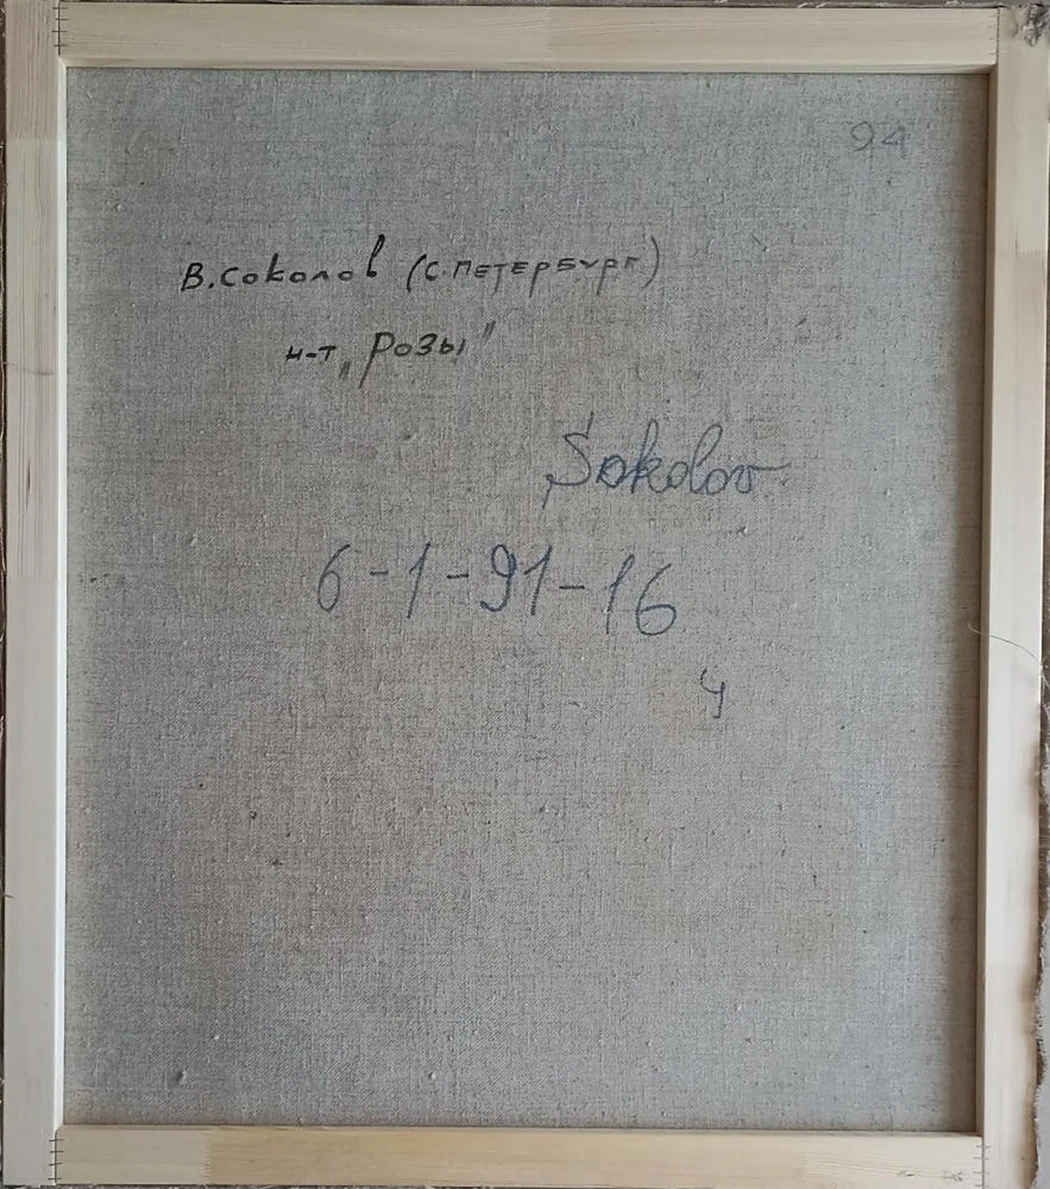 94
В. Соколов (С. ПЕТЕРБУРГ)
н-т „Розы"
Sokolov
6-1-91-16
4